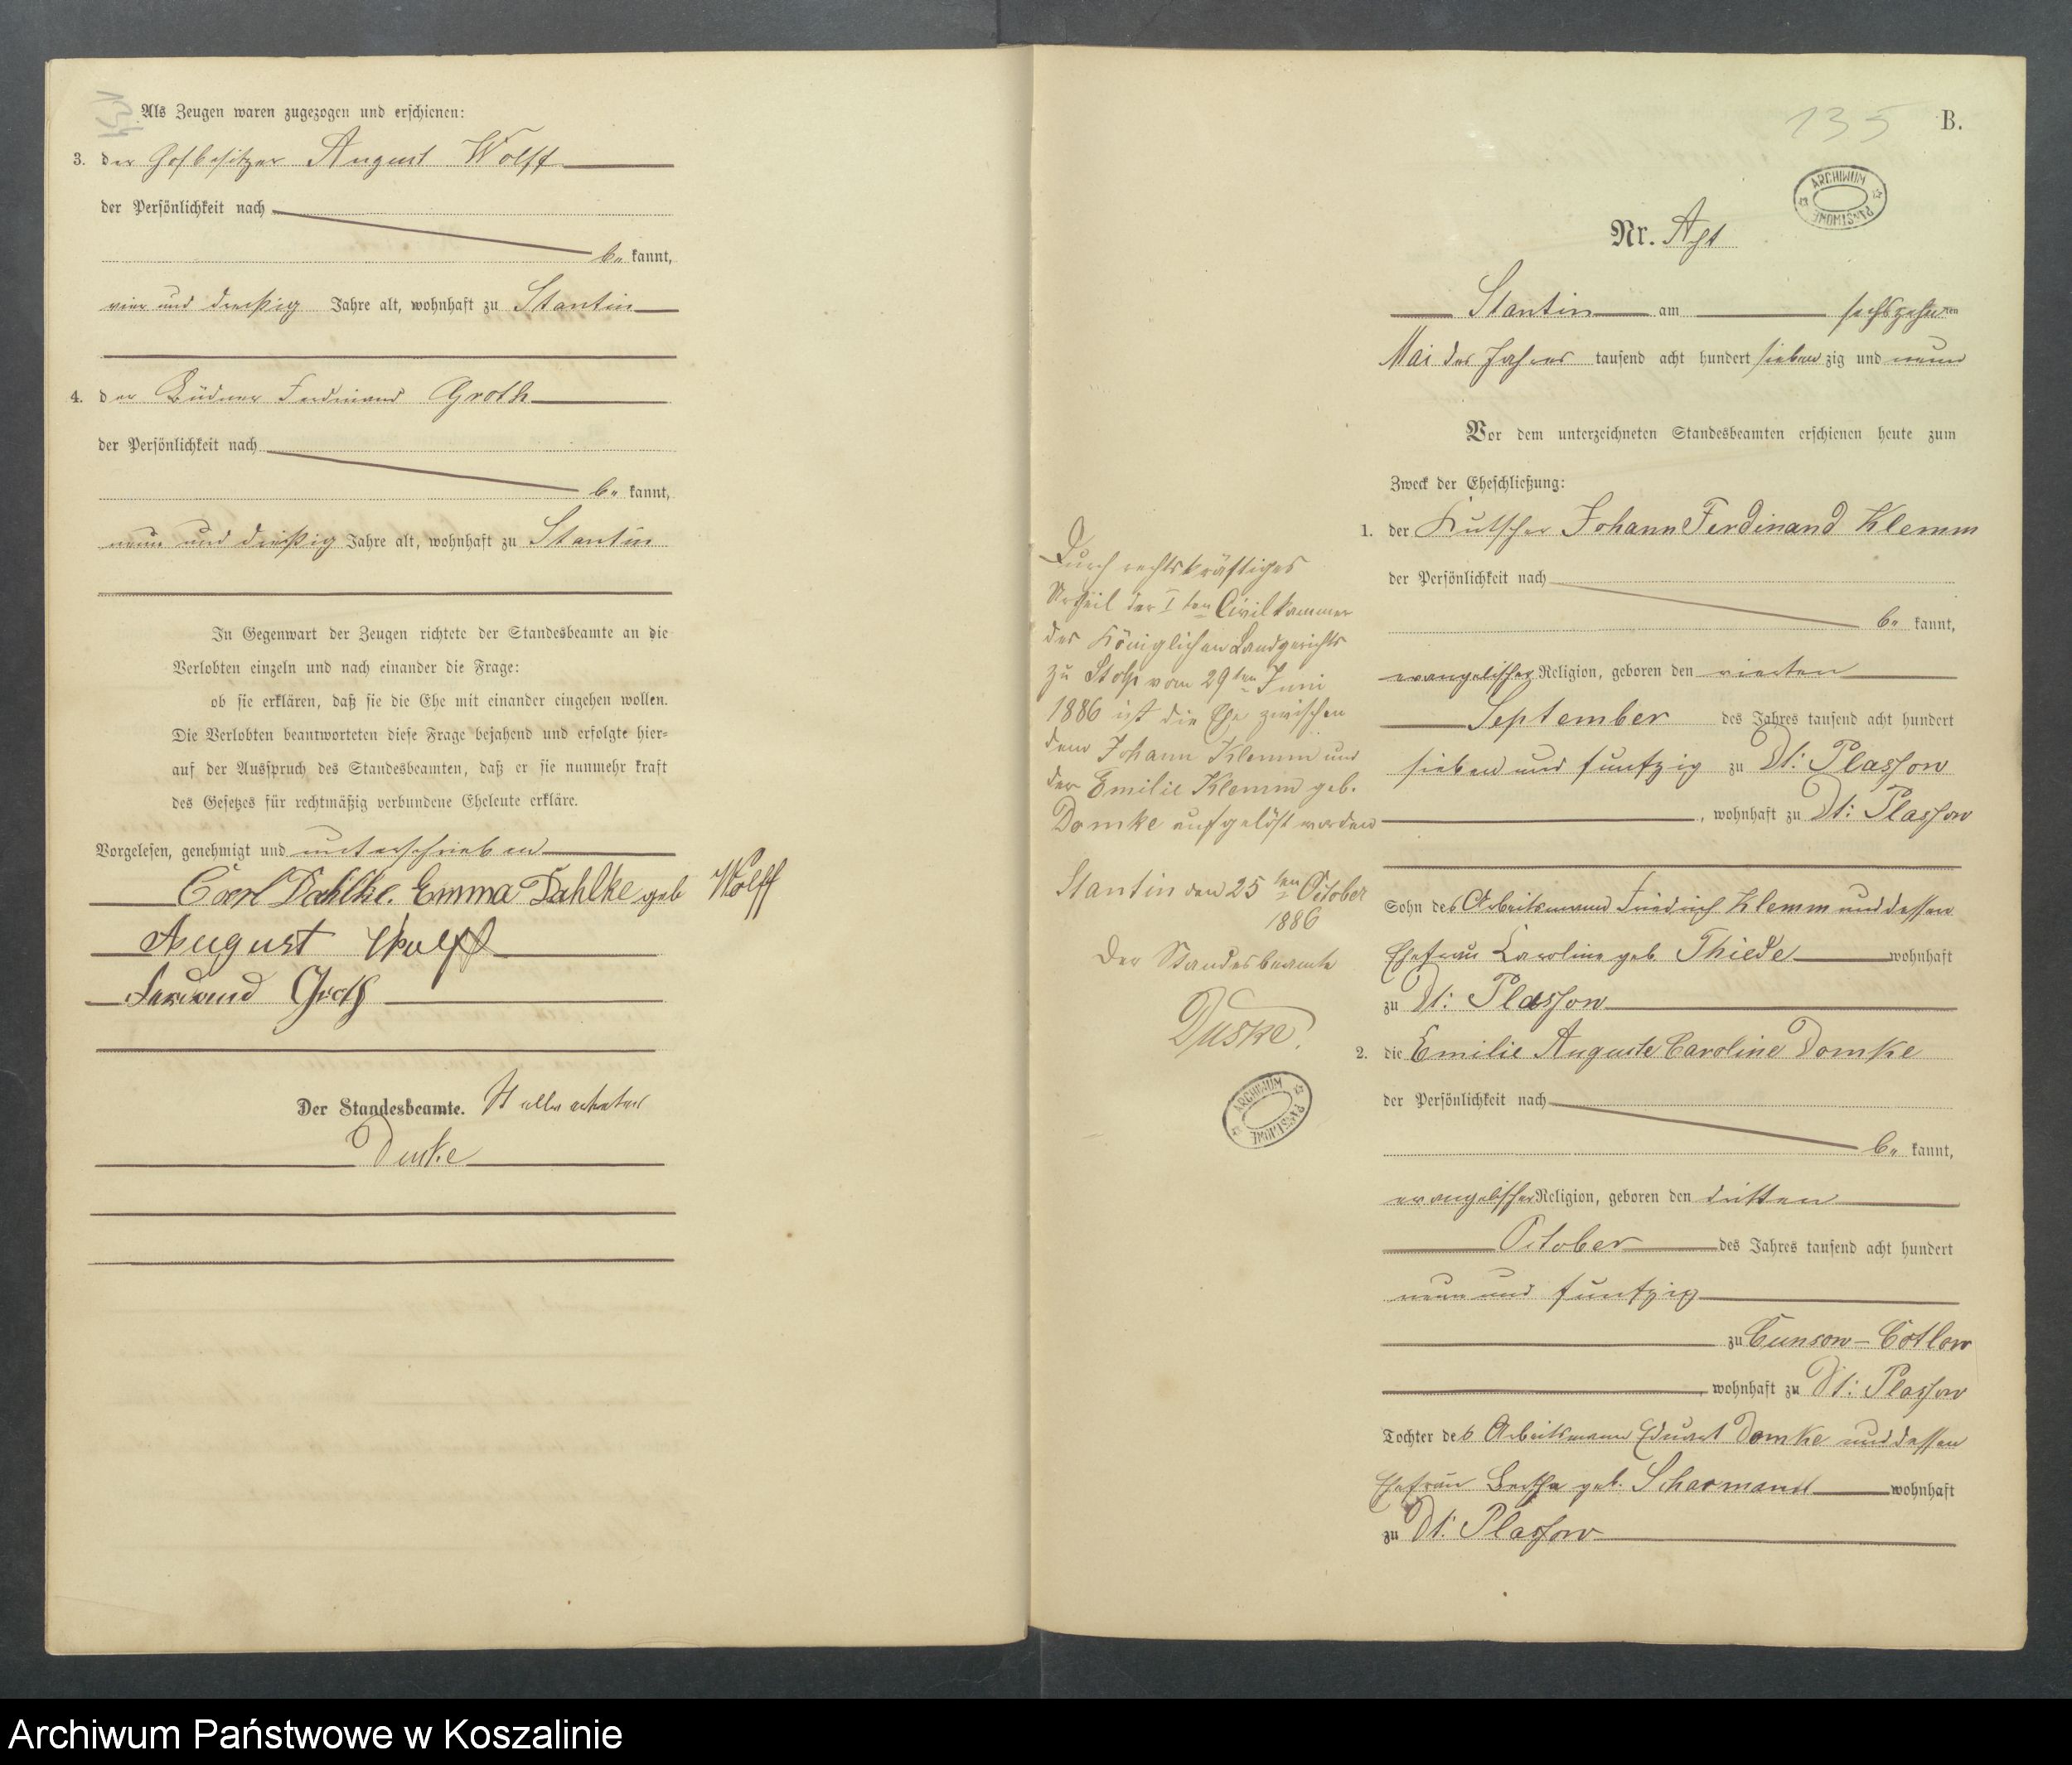 Als Zeugen waren zugezogen und erschienen:
3. der Hofbesitzer August Wolff
der Persönlichkeit nach
be kannt,
vier und dreißig Jahre alt, wohnhaft zu Stantin
4. der Büdner Ferdinand Groth
der Persönlichkeit nach
be kannt,
neun und dreißig Jahre alt, wohnhaft zu Stantin
In Gegenwart der Zeugen richtete der Standesbeamte an die
Verlobten einzeln und nach einander die Frage:
ob sie erklären, daß sie die Ehe mit einander eingehen wollen.
Die Verlobten beantworteten diese Frage bejahend und erfolgte hier-
auf der Ausspruch des Standesbeamten, daß er sie nunmehr kraft
des Gesetzes für rechtmäßig verbundene Eheleute erkläre.
Vorgelesen, genehmigt und unterschrieben
Carl Dahlke. Emma Dahlke geb Wolff
August Wolff
Ferdinand Groth
Der Standesbeamte. Stellvertreter
Duske
135 B.
ARCHIWUM PAŃSTWOWE
Nr. Acht
Stantin am sechszehnten
Mai des Jahres tausend acht hundert siebenzig und neun
Vor dem unterzeichneten Standesbeamten erschienen heute zum
Zweck der Eheschließung:
1. der Kutscher Johann Ferdinand Klemm
der Persönlichkeit nach
be kannt,
evangelischer Religion, geboren den vierten
September des Jahres tausend acht hundert
sieben und funfzig zu Dt: Plassow
, wohnhaft zu Dt: Plassow
Sohn des Arbeitsmann Friedrich Klemm und dessen
Ehefrau Caroline geb. Thiede wohnhaft
zu Dt: Plassow
2. die Emilie Auguste Caroline Domke
der Persönlichkeit nach
be kannt,
evangelischer Religion, geboren den dritten
October des Jahres tausend acht hundert
neun und funfzig
zu Cunsow-Cotlow
, wohnhaft zu Dt: Plassow
Tochter des Arbeitsmann Eduard Domke und dessen
Ehefrau Bertha geb. Scharmand wohnhaft
zu Dt: Plassow
Durch rechtskräftiges
Urtheil der Iten Civilkammer
des Königlichen Landgerichts
zu Stolp vom 29ten Juni
1886 ist die Ehe zwischen
dem Johann Klemm und
der Emilie Klemm geb.
Domke aufgelöst worden
Stantin den 25ten October
1886
Der Standesbeamte
Duske
ARCHIWUM PAŃSTWOWE
Archiwum Państwowe w Koszalinie